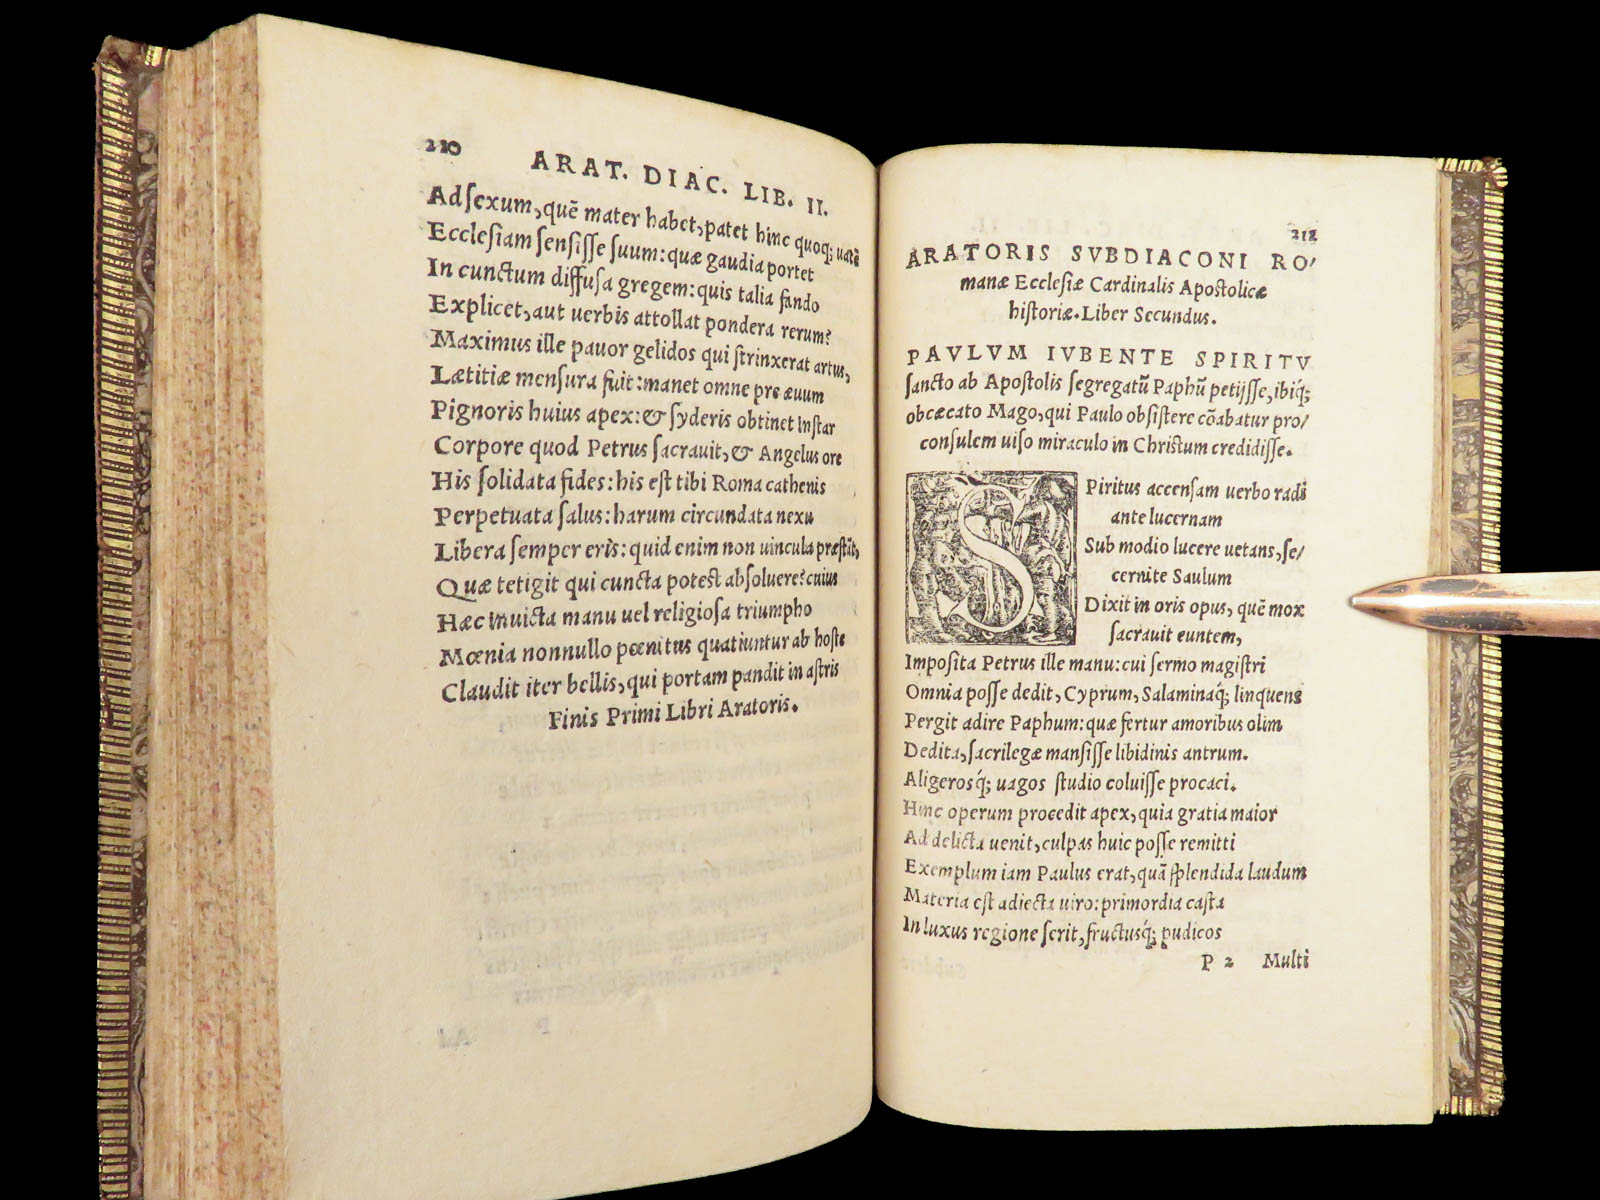 210
ARAT. DIAC. LIB. II.
Ad sexum, quē mater habet, patet hinc quoq; uatē
Ecclesiam sensisse suum: quæ gaudia portet
In cunctum diffusa gregem: quis talia fando
Explicet, aut uerbis attollat pondera rerum?
Maximus ille pauor gelidos qui strinxerat artus,
Lætitiæ mensura fuit: manet omne per æuum
Pignoris huius apex: & syderis obtinet instar
Corpore quod Petrus sacrauit, & Angelus ore
His solidata fides: his est tibi Roma cathenis
Perpetuata salus: harum circundata nexu
Libera semper eris: quid enim non uincula præstāt,
Quæ tetigit qui cuncta potest absoluere? cuius
Hæc inuicta manu uel religiosa triumpho
Mœnia nonnullo pœnitus quatiuntur ab hoste
Claudit iter bellis, qui portam pandit in astris
Finis Primi Libri Aratoris.
212
ARATORIS SVBDIACONI RO/
manæ Ecclesiæ Cardinalis Apostolicæ
historiæ. Liber Secundus.
PAVLVM IVBENTE SPIRITV
sancto ab Apostolis segregatū Paphū petijsse, ibiq;
obcæcato Mago, qui Paulo obsistere cōabatur pro/
consulem uiso miraculo in Christum credidisse.
SPiritus accensam uerbo radi
ante lucernam
Sub modio lucere uetans, se/
cernite Saulum
Dixit in oris opus, quē mox
sacrauit euntem,
Imposita Petrus ille manu: cui sermo magistri
Omnia posse dedit, Cyprum, Salaminaq; linquens
Pergit adire Paphum: quæ fertur amoribus olim
Dedita, sacrilegæ mansisse libidinis antrum.
Aligerosq; uagos studio coluisse procaci.
Hinc operum procedit apex, quia gratia maior
Ad delicta uenit, culpas huic posse remitti
Exemplum iam Paulus erat, quā splendida laudum
Materia est adiecta uiro: primordia casta
In luxus regione serit, fructusq; pudicos
P 2 Multi